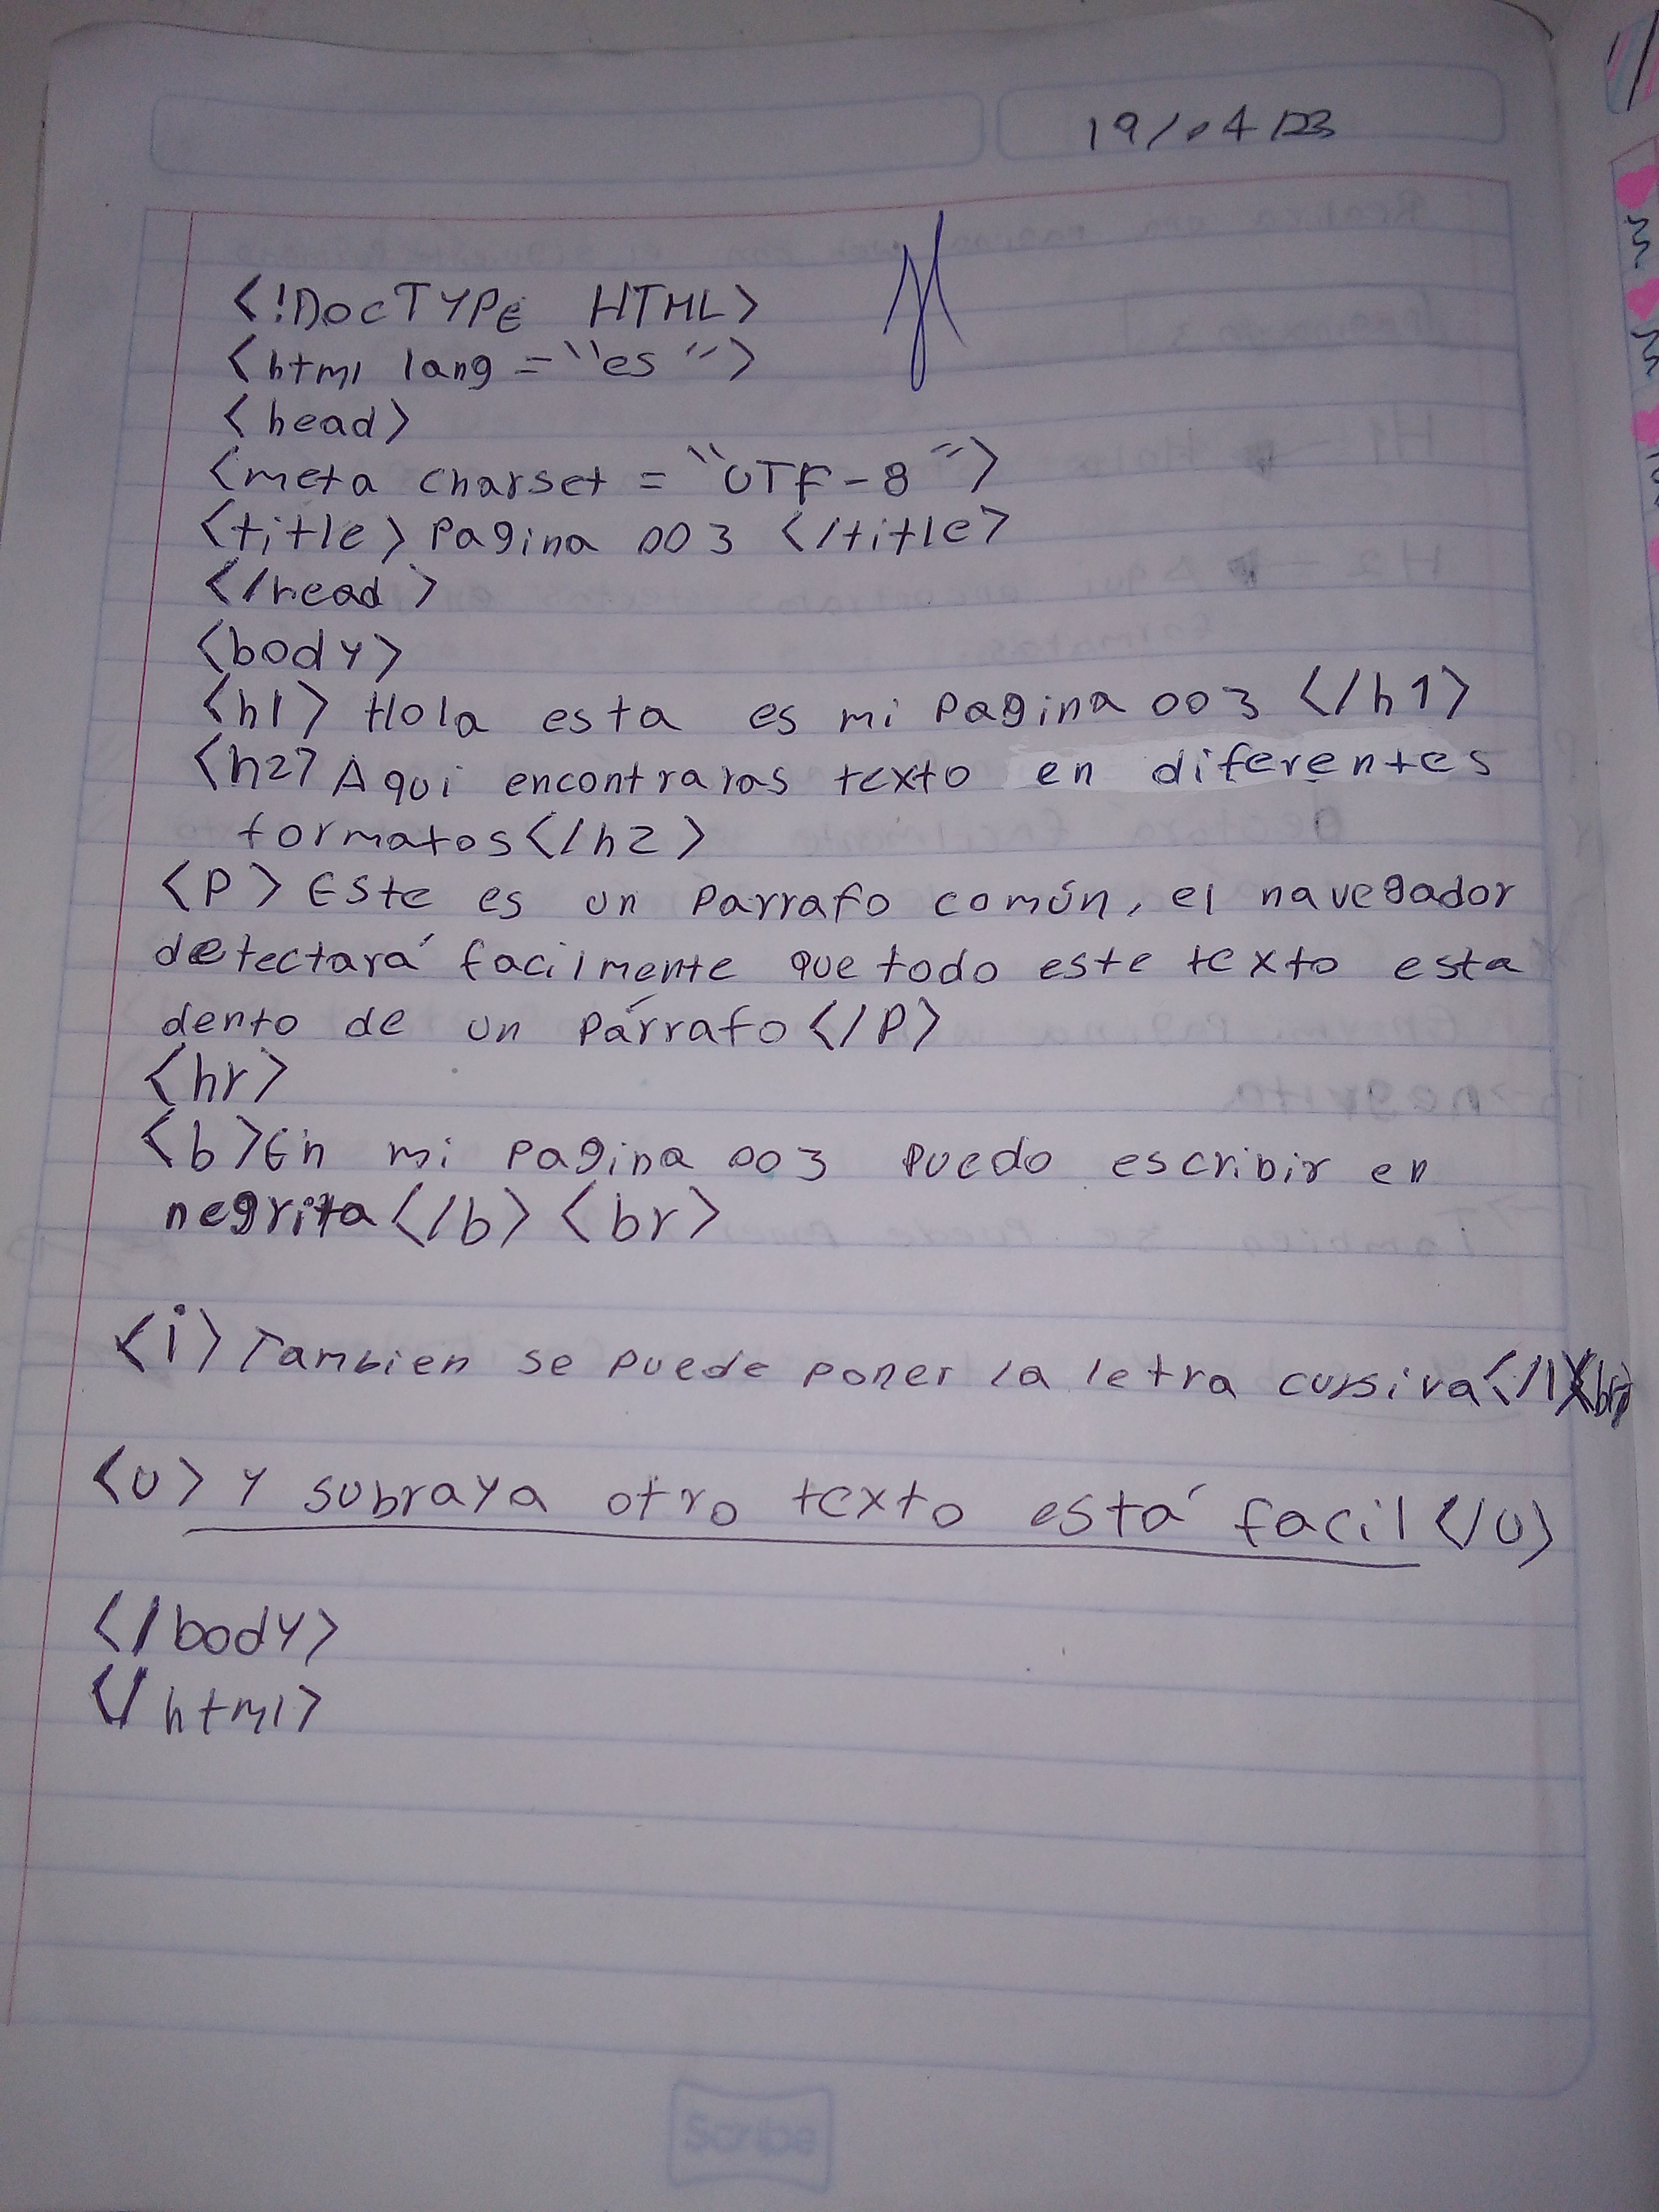 19/04/23
<!DOCTYPE HTML>
<html lang = "es">
<head>
<meta charset = "UTF-8">
<title> Pagina 003 </title>
</head>
<body>
<h1> Hola esta es mi Pagina 003 </h1>
<h2> Aqui encontraras texto en diferentes
formatos</h2>
<P> Este es un Parrafo común, el navegador
detectará facilmente que todo este texto esta
dento de un Párrafo</P>
<hr>
<b>En mi Pagina 003 Puedo escribir en
negrita</b> <br>
<i> Tambien se puede poner la letra cursiva</i><br>
<u> Y subraya otro texto está facil </u>
</body>
</html>
Scribe